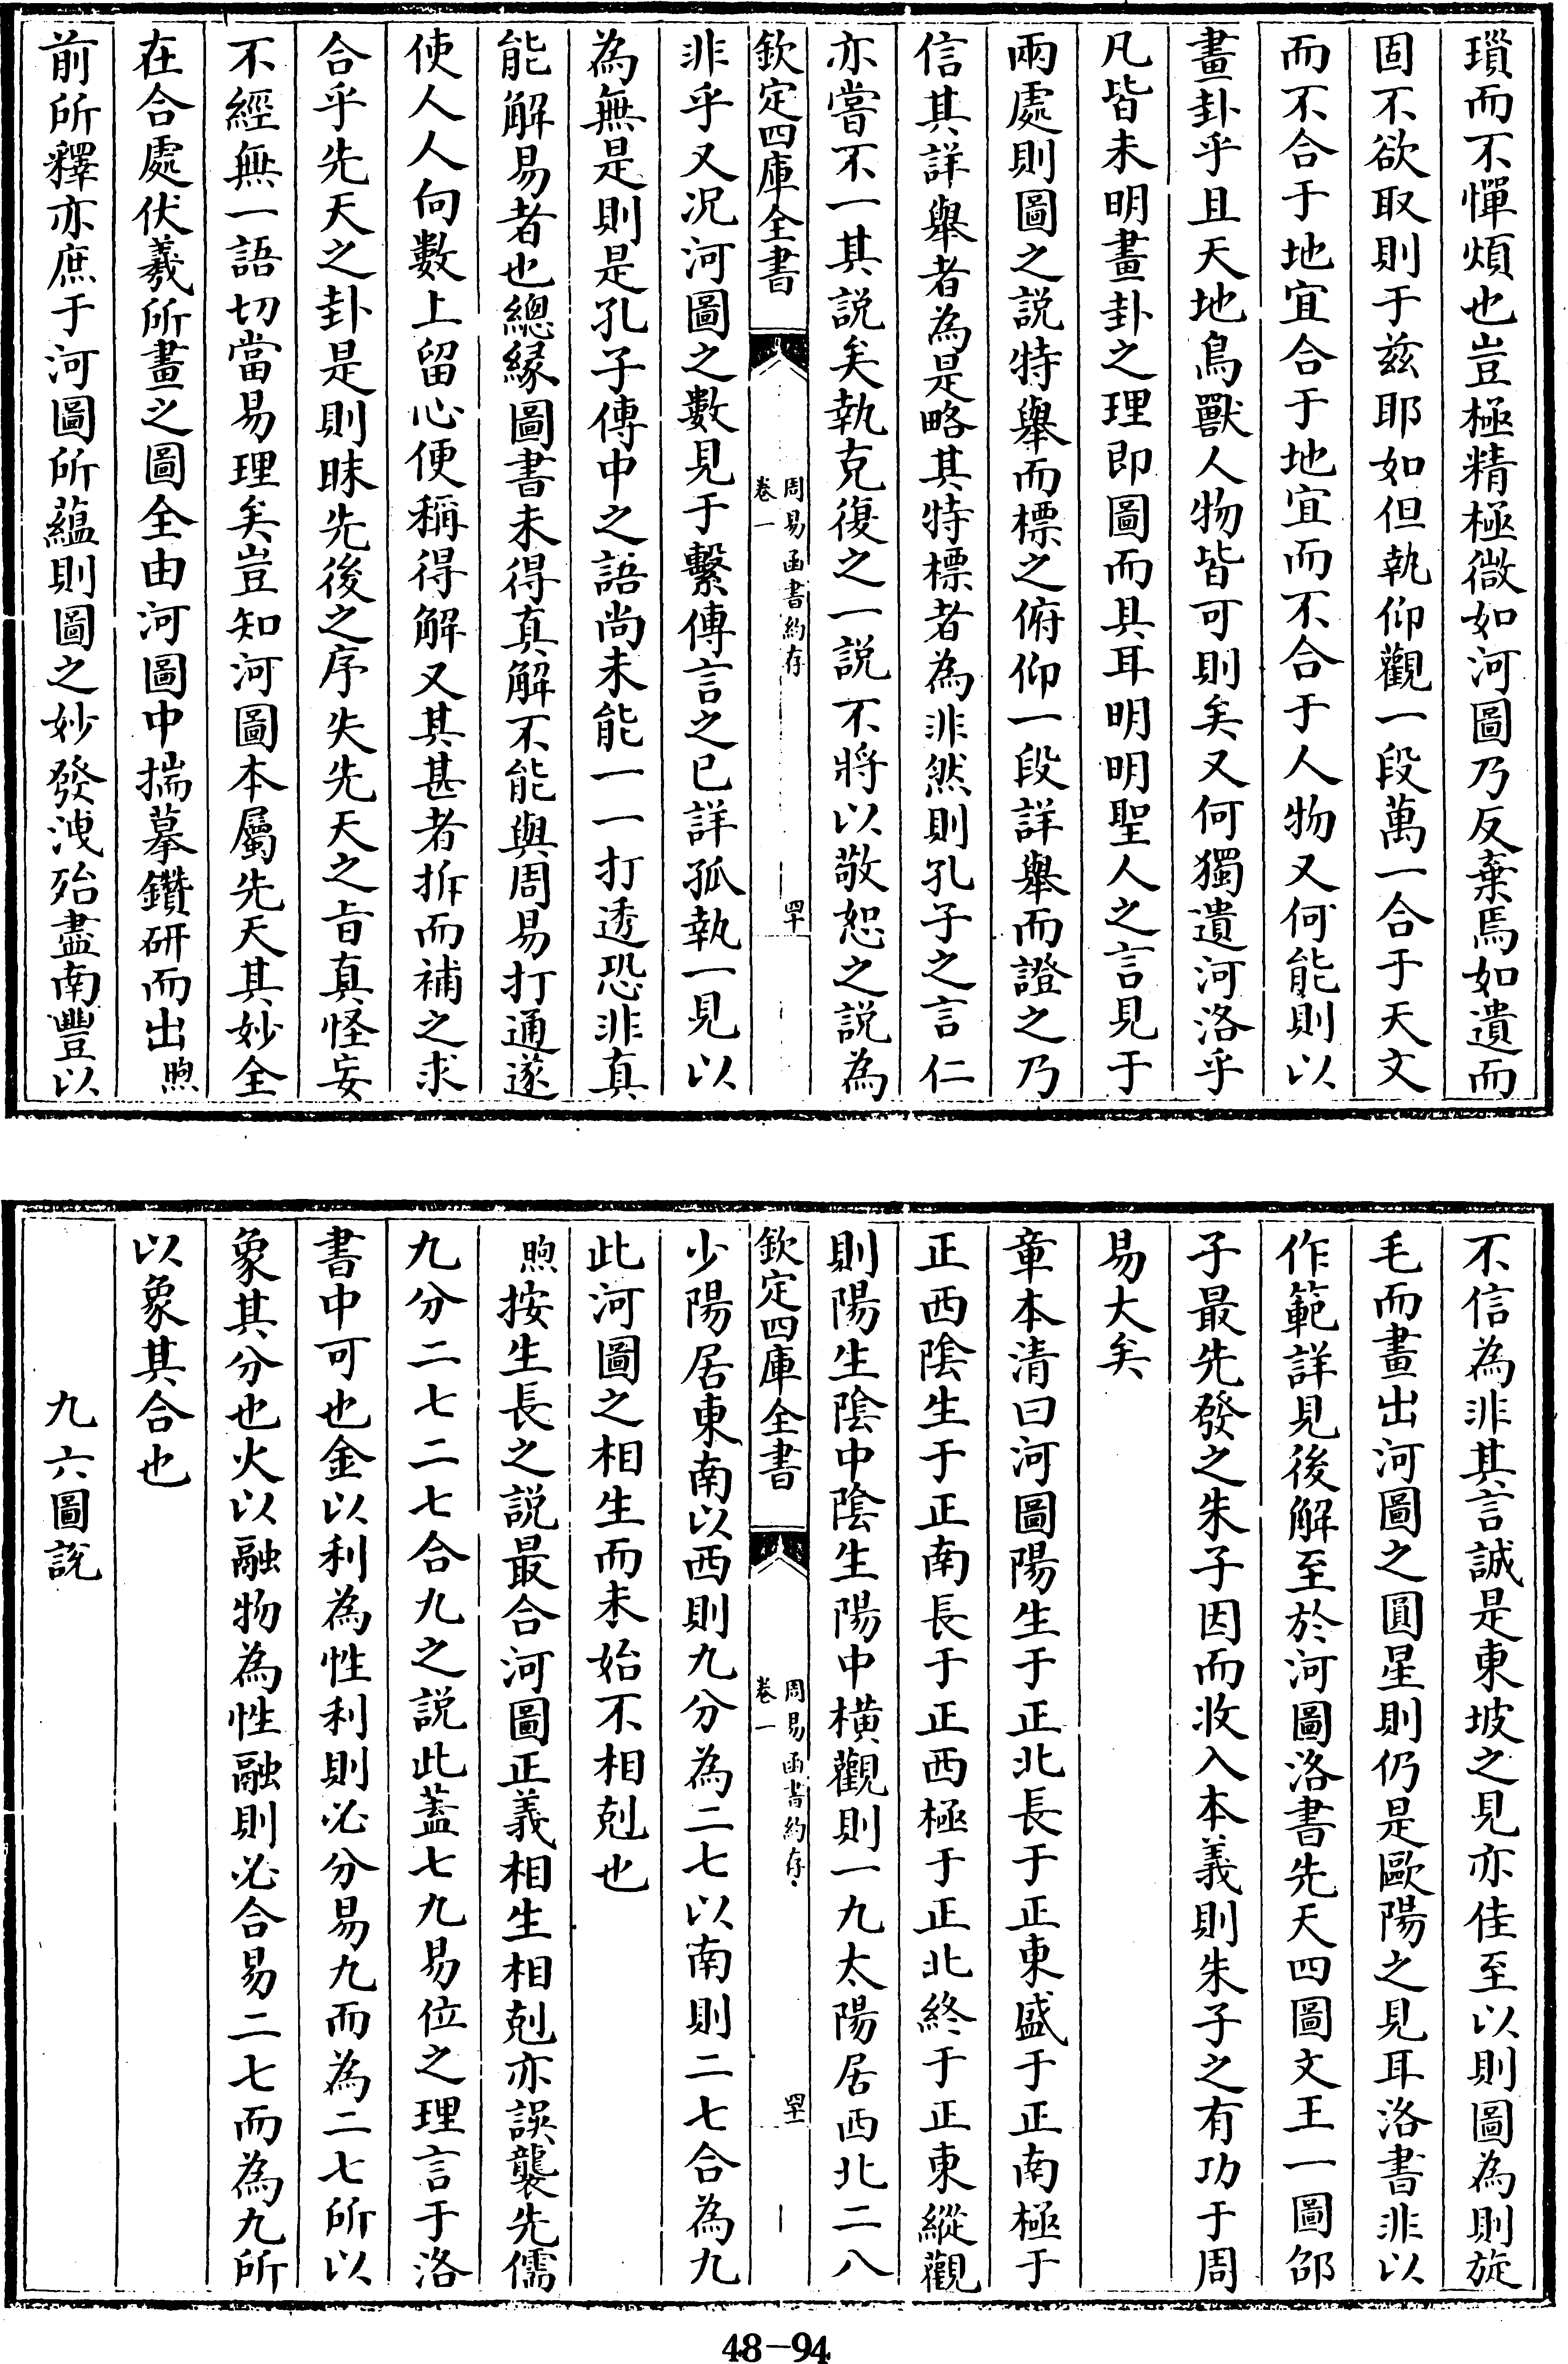 瑣而不憚煩也豈極精極微如河圖乃反棄焉如遺而
固不欲取則于兹耶如但執仰觀一段萬一合于天文
而不合于地宜合于地宜而不合于人物又何能則以
畫卦乎且天地鳥獸人物皆可則矣又何獨遺河洛乎
凡皆未明畫卦之理即圖而具耳明明聖人之言見于
兩處則圖之説特舉而標之俯仰一段詳舉而證之乃
信其詳舉者為是略其特標者為非然則孔子之言仁
亦嘗不一其説矣執克復之一説不將以敬恕之説為
欽定四庫全書
周易函書約存
卷一
四十
非乎又况河圖之數見于繫傳言之已詳孤執一見以
為無是則是孔子傳中之語尚未能一一打透恐非真
能解易者也總緣圖書未得真解不能與周易打通遂
使人人向數上留心便稱得解又其甚者拆而補之求
合乎先天之卦是則昧先後之序失先天之旨真怪妄
不經無一語切當易理矣豈知河圖本屬先天其妙全
在合處伏羲所畫之圖全由河圖中揣摹鑽研而出煦
前所釋亦庶于河圖所蘊則圖之妙發洩殆盡南豐以
不信為非其言誠是東坡之見亦佳至以則圖為則旋
毛而畫出河圖之圓星則仍是歐陽之見耳洛書非以
作範詳見後解至於河圖洛書先天四圖文王一圖邵
子最先發之朱子因而收入本義則朱子之有功于周
易大矣
章本清曰河圖陽生于正北長于正東盛于正南極于
正西陰生于正南長于正西極于正北終于正東縱觀
則陽生陰中陰生陽中橫觀則一九太陽居西北二八
欽定四庫全書
周易函書約存
卷一
四十一
少陽居東南以西則九分為二七以南則二七合為九
此河圖之相生而未始不相剋也
煦按生長之説最合河圖正義相生相剋亦誤襲先儒
九分二七二七合九之説此蓋七九易位之理言于洛
書中可也金以利為性利則必分易九而為二七所以
象其分也火以融物為性融則必合易二七而為九所
以象其合也
九六圖説
48-94